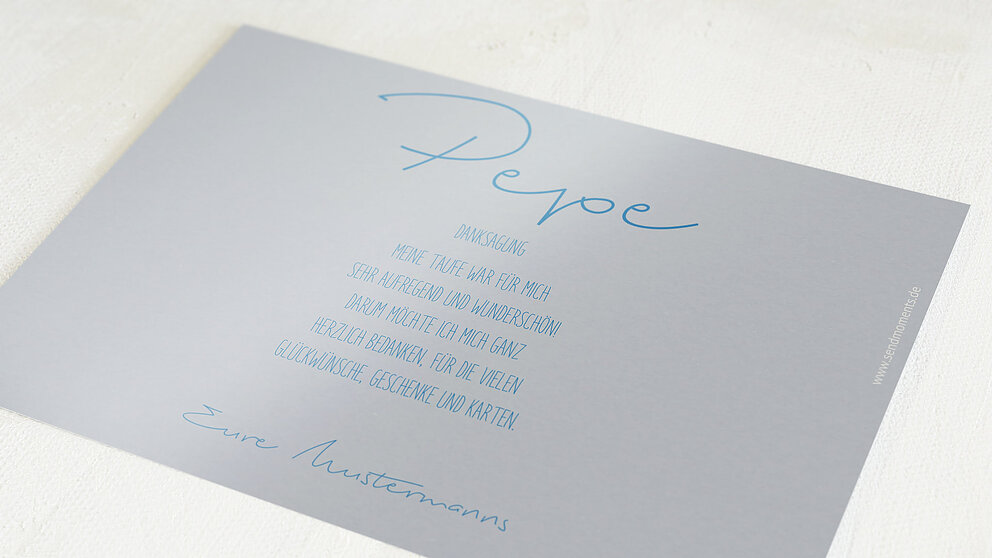 Pepe
DANKSAGUNG
MEINE TAUFE WAR FÜR MICH
SEHR AUFREGEND UND WUNDERSCHÖN!
DARUM MÖCHTE ICH MICH GANZ
HERZLICH BEDANKEN, FÜR DIE VIELEN
GLÜCKWÜNSCHE, GESCHENKE UND KARTEN.
Eure Mustermanns
www.sendmoments.de